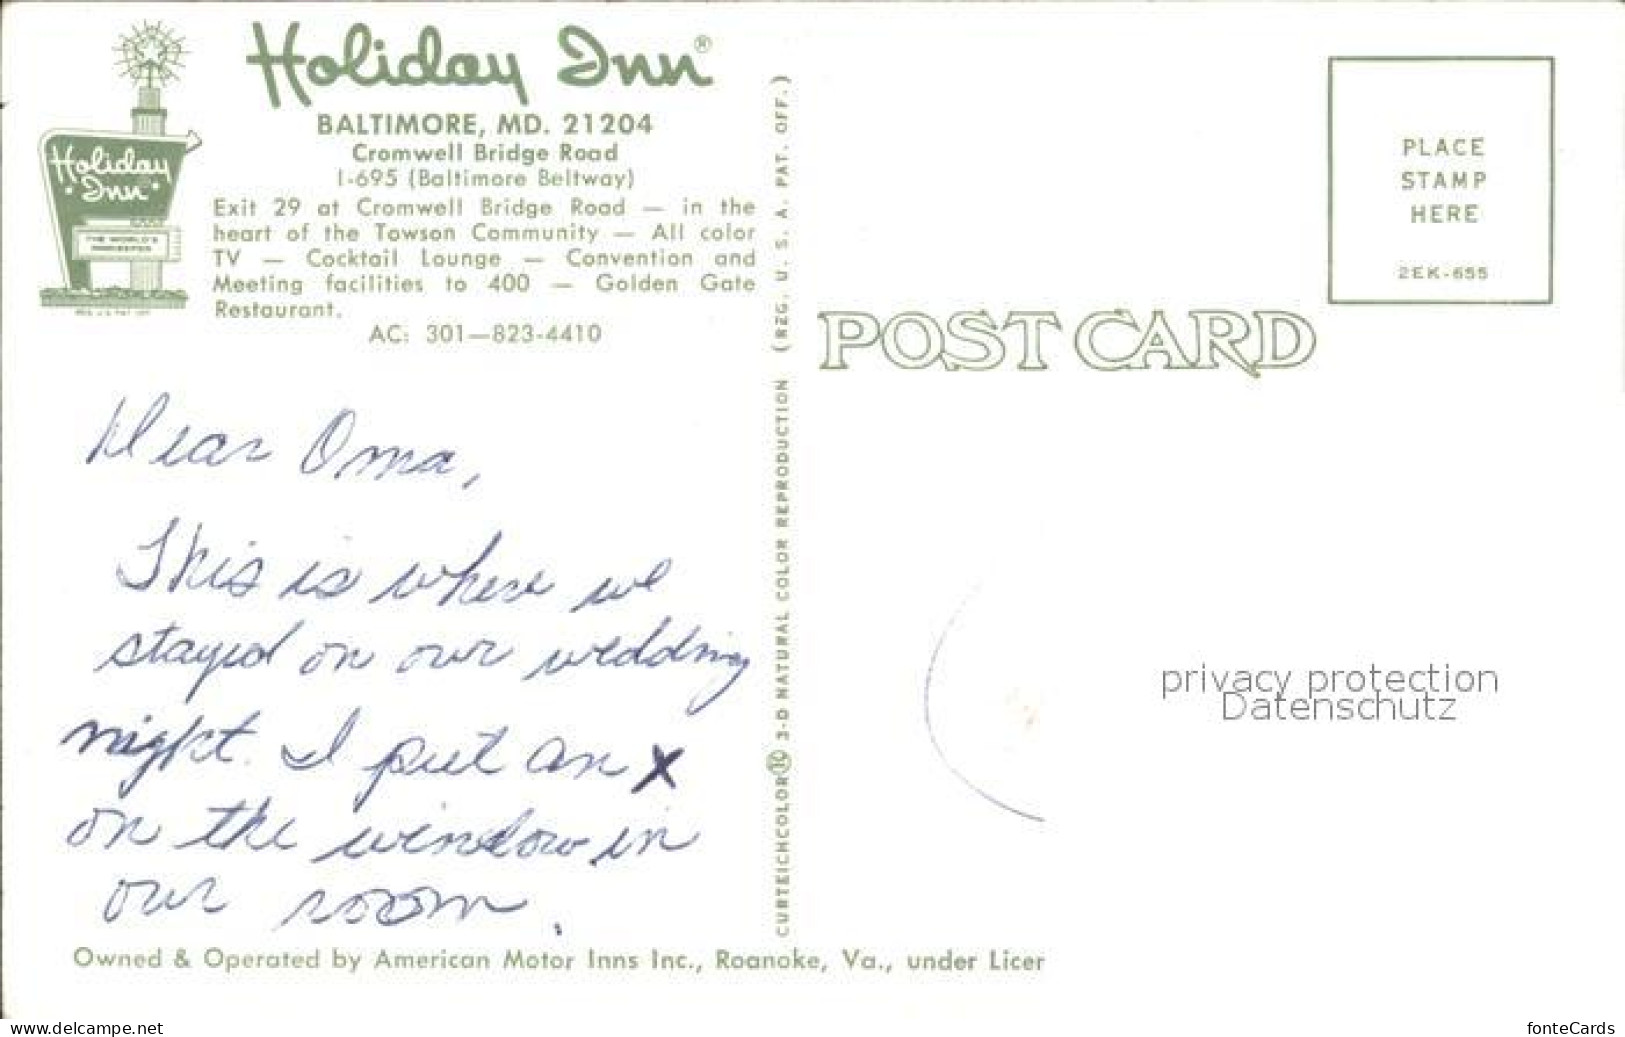 Holiday Inn®
BALTIMORE, MD. 21204
Cromwell Bridge Road
I-695 (Baltimore Beltway)
Exit 29 at Cromwell Bridge Road — in the
heart of the Towson Community — All color
TV — Cocktail Lounge — Convention and
Meeting facilities to 400 — Golden Gate
Restaurant.
AC: 301—823-4410
Holiday
Inn
THE WORLD'S
INNKEEPER
Dear Oma,
This is where we
stayed on our wedding
night. I put an X
on the window in
our room.
Owned & Operated by American Motor Inns Inc., Roanoke, Va., under Licer
CURTEICHCOLOR® 3-D NATURAL COLOR REPRODUCTION (REG. U. S. A. PAT. OFF.)
POST CARD
PLACE
STAMP
HERE
2EK-655
privacy protection
Datenschutz
www.delcampe.net
fonteCards